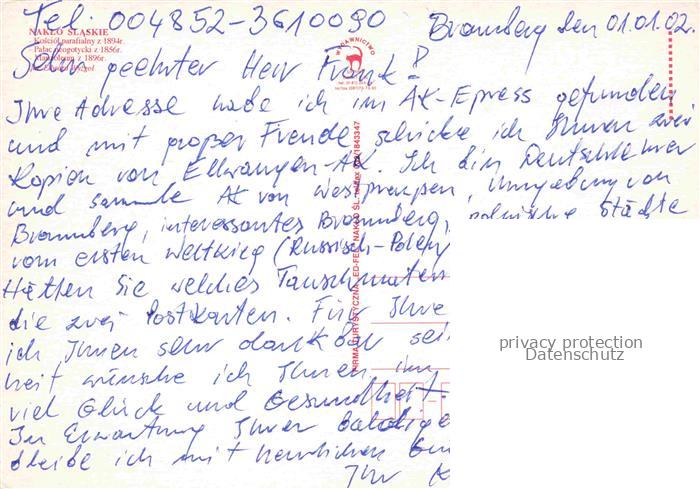 Tel. 004852-3610090
Bromberg den 01.01.02.
NAKŁO ŚLĄSKIE
Kościół parafialny z 1894r.
Pałac neogotycki z 1856r.
Mauzoleum z 1896r.
WYDAWNICTWO
Sehr geehrter Herr Frank!
Ihre Adresse habe ich im AK-Epress gefunden
und mit großer Freude schicke ich Ihnen zwei
Kopien von Ellwangen-AK. Ich bin Deutschlehrer
und sammle AK von Westpreußen, Umgebung von
Bromberg, interessantes Bromberg, polnische Städte
vom ersten Weltkrieg (Russisch-Polen)
Hätten Sie welches Tauschmaterial
die zwei Postkarten. Für Ihre
ich Ihnen sehr dankbar sei
heit wünsche ich Ihnen im
viel Glück und Gesundheit.
In Erwartung Ihrer baldige
bleibe ich mit herzlichen
Ihr K
privacy protection
Datenschutz